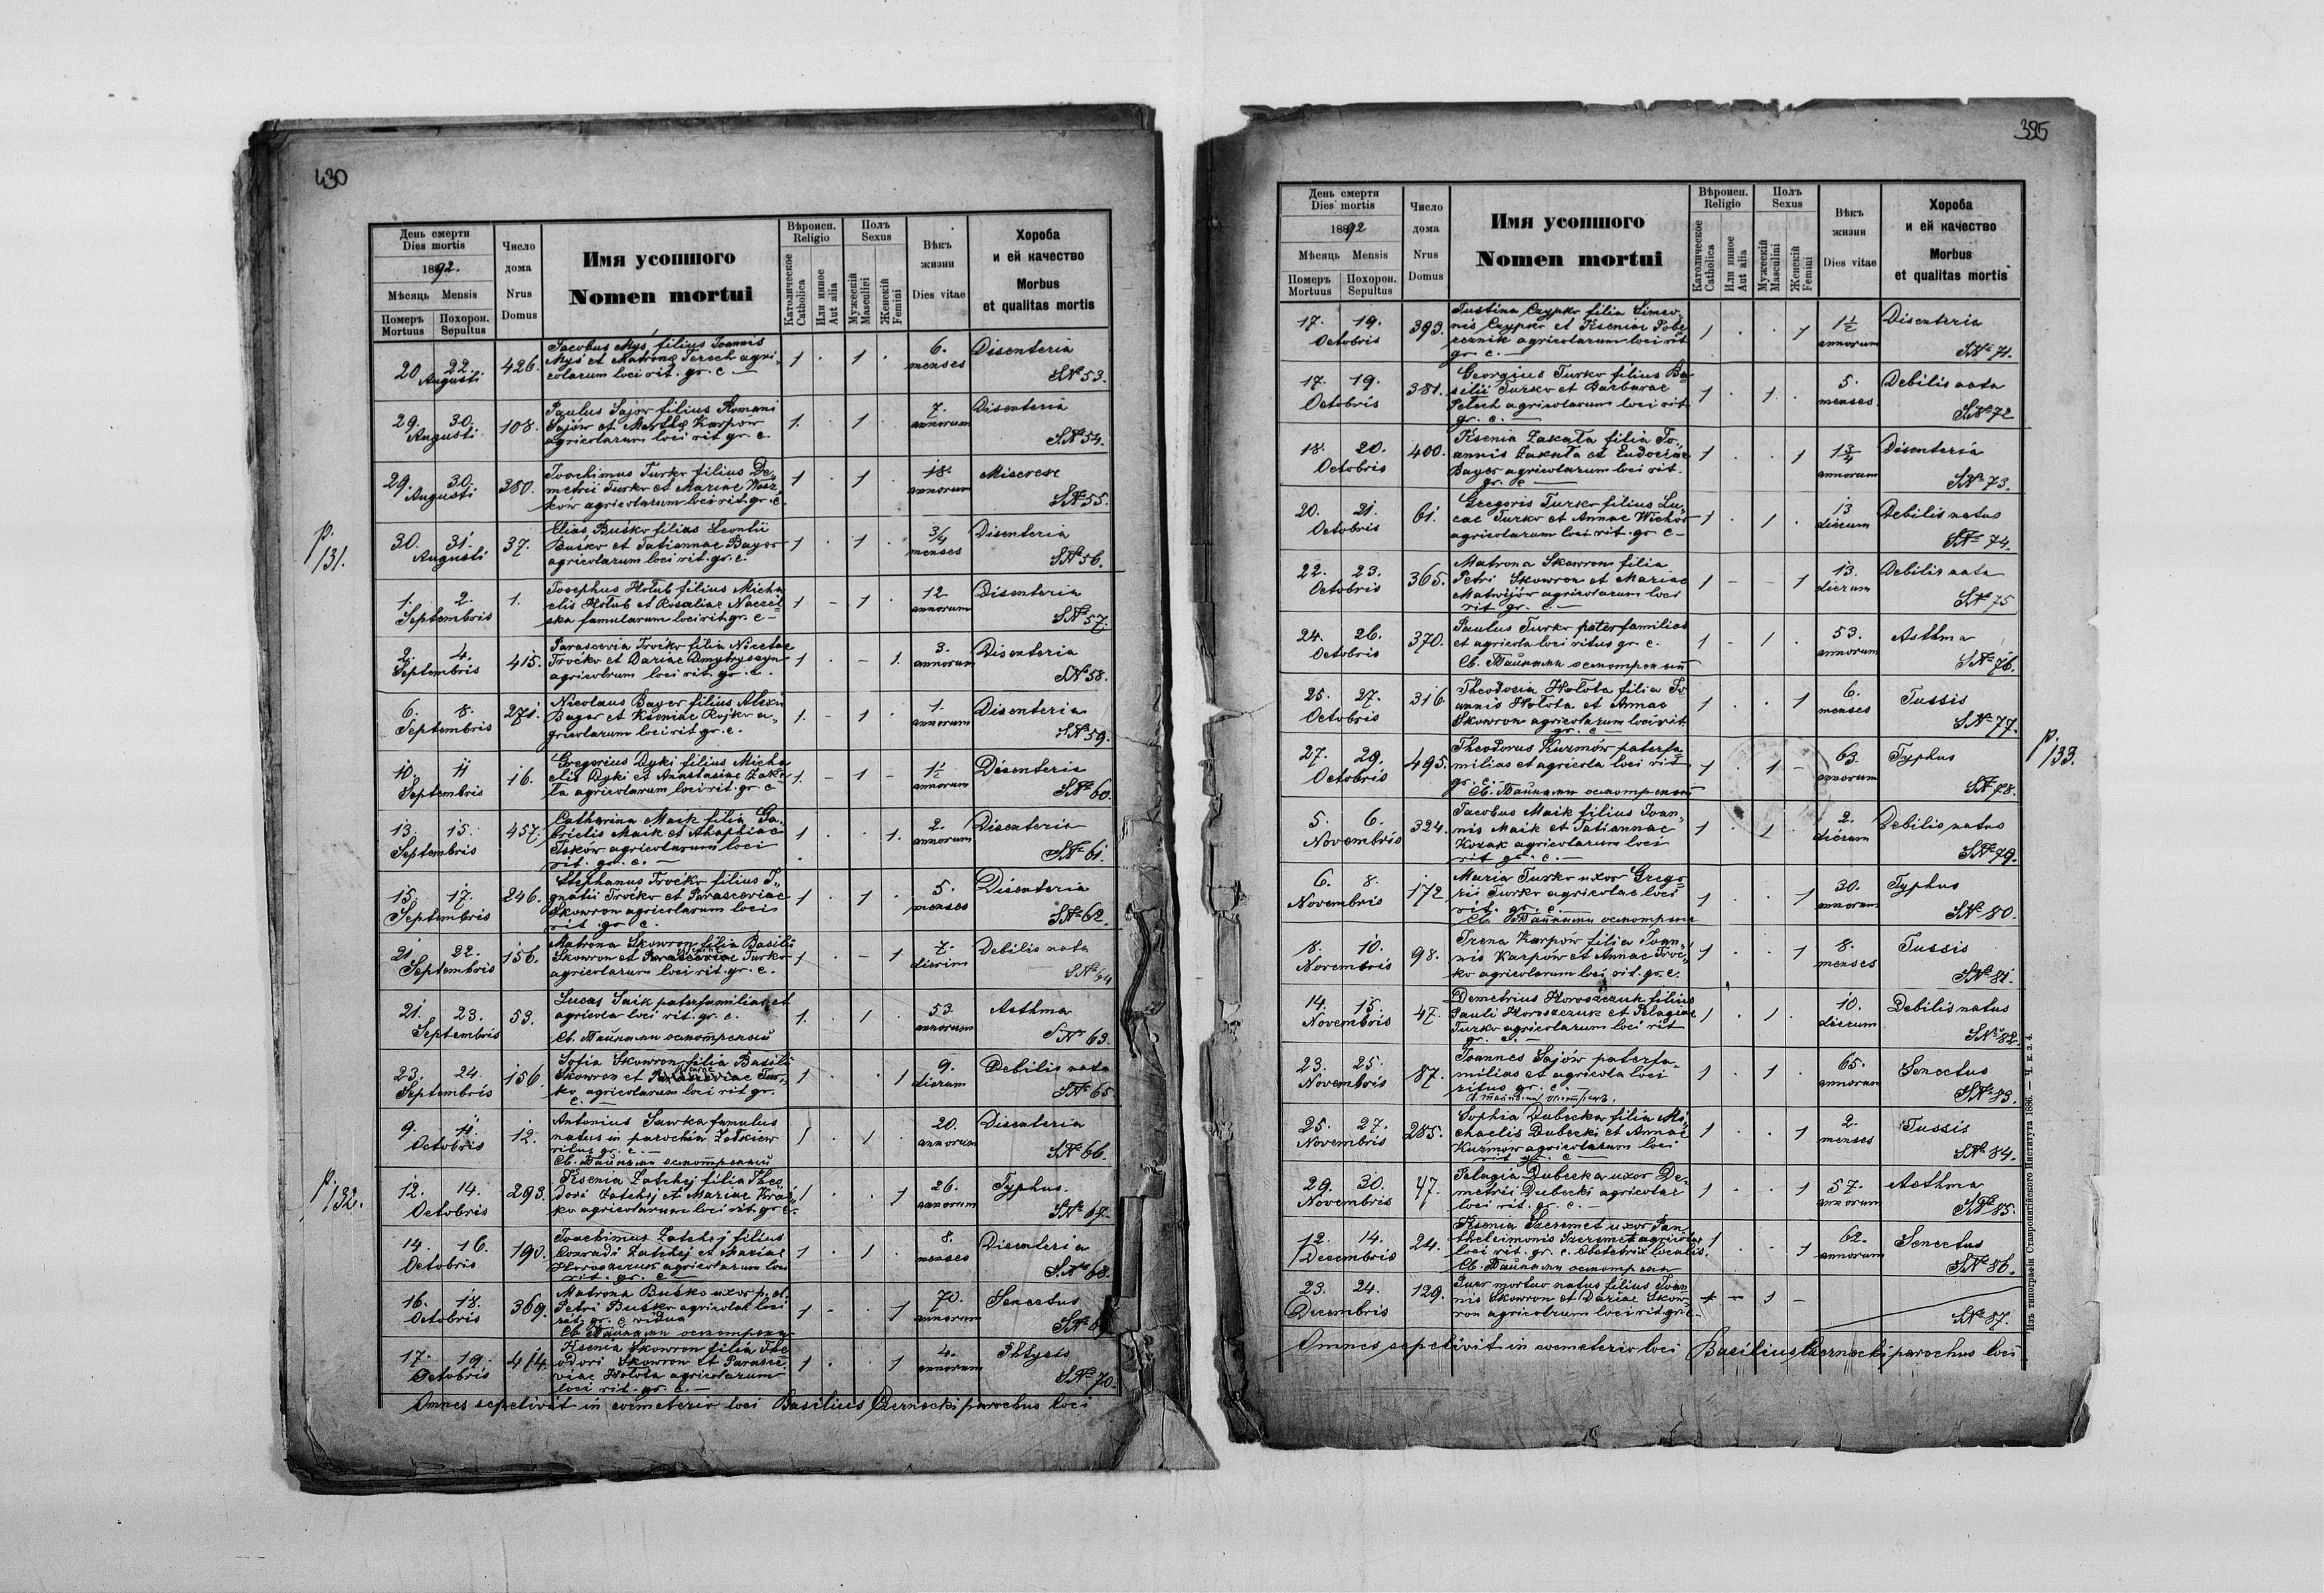 430
День смерти
Dies mortis
1892.
Мѣсяць Mensis
Померъ Mortuus
Похорон. Sepultus
Число дома
Nrus Domus
Имя усопшого
Nomen mortui
Вѣроисп. Religio
Католическое Catholica
Или инное Aut alia
Полъ Sexus
Мужескій Masculini
Женскій Femini
Вѣкъ жизни
Dies vitae
Хороба
и ей качество
Morbus
et qualitas mortis
20 22. Augusti 426. Jacobus Myś, filius Joannis
Myś et Matronae Terech agri-
colarum loci rit. gr. c — 1 . 1 . 6. menses Disenteria
SNº 53.
29. 30. Augusti 108. Paulus Sajów filius Romani
Sajów et Marthae Karpów
agricolarum loci rit. gr. c. 1. . 1 . 7. annorum Disenteria
SNº 54.
29. 30. Augusti 380. Joachimus Turko filius De-
metrii Turko et Mariae
ków agricolarum loci rit. gr. c. 1 . 1 . 18. annorum Miserere
SNº 55.
p. 131.
30. 31. Augusti 37. Elias Buśko filius Leontii
Buśko et Tatiannae Bayor
agricolarum loci rit. gr. c. 1 . 1 . 3/4 menses Disenteria
SNº 56.
1. 2. Septembris 1. Josephus Hołub filius Micha
elis Hołub et Rosaliae
ska famularum loci rit. gr. c — 1 - 1 . 12 annorum Disenteria
SNº 57.
2. 4. Septembris 415. Parascevia Troćko filia Nicetae
Troćko et Dariae Dmytryszyn
agricolrum loci rit. gr. c. 1 . - 1. 3. annorum Disenteria
SNº 58.
6. 8. Septembris 271. Nicolaus Bayer filius Alexii
Bayer et Kseniae Rojko a-
gricolarum loci rit. gr. c. 1. - 1 . 1. annorum Disenteria
SNº 59.
10. 11 Septembris 16. Gregorius Dyki filius Micha
elis Dyki et Anastasiae Zaka
ła agricolarum loci rit. gr. c 1. - 1 - 1 1/2 annorum Disenteria
SNº 60.
13. 15. Septembris 457. Catharina Maik filia Ga-
brielis Maik et Ahaphiae
Iśków agricolarum loci
rit. gr. c. — 1 . . 1. 2. annorum Disenteria
SNº 61.
15. 17. Septembris 246. Stephanus Troćko filius I-
gnatii Troćko et Parasceviae
Skowron agricolarum loci
rit. gr. c. 1 . 1 . 5. menses Disenteria
SNº 62.
21 22. Septembris 156. Matrona Skowron filia Basilii
Skowron et Parasceviae Turko
agricolarum loci rit. gr. c. 1 . - 1 7. dierim Debilis nata
SNº 64
21. 23. Septembris 53. Lucas Saik paterfamilias et
agricola loci rit. gr. c.
Св. Тайнами осмотреный 1. . 1 . 53. annorum Asthma
SNº 63.
23. 24. Septembris 156. Sofia Skowron filia Basilii
Skowron et Parasceviae Tur-
ko agricolarum loci rit gr.
c. — 1 . . 1 9. dierum Debilis nata
SNº 65
9. 11. Octobris 12. Antonius Sawka famulus
natus in parochia Żółkiew
ritus gr. c. —
Св. Тайнами осмотреный 1 . 1 . 20. annorum Disenteria
SNº 66.
p. 132.
12. 14. Octobris 293. Ksenia Załchej filia Theo
dori Załchej et Mariae
ko agricolarum loci rit. gr. c. 1 . . 1 26. annorum Typhus.
SNº 67.
14. 16. Octobris 190. Joachimus Załchej filius
Conradi Załchej et Mariae
Horoszczuk agricolarum loci
rit. gr. c. — 1 . 1 . 8. menses Disenteria
SNº 68.
16. 18. Octobris 369. Matrona Buśko uxor p. d.
Petri Buśko agricolae loci
rit. gr. c vidua
Св. Тайнами осмотрена 1 - . 1 70. annorum Senectus
SNº
17. 19. Octobris 414. Ksenia Skowron filia The
odori Skowron et Parasce
viae Hołota agricolarum
loci rit. gr. c. — 1 . . 1 4. annorum Phtysis
SNº 70.
Omnes sepelivit in coemeterio loci Basilius Czernecki parochus loci
395
День смерти
Dies mortis
1892
Мѣсяць Mensis
Померъ Mortuus
Похорон. Sepultus
Число дома
Nrus Domus
Имя усопшого
Nomen mortui
Вѣроисп. Religio
Католическое Catholica
Или инное Aut alia
Полъ Sexus
Мужескій Masculini
Женскій Femini
Вѣкъ жизни
Dies vitae
Хороба
и ей качество
Morbus
et qualitas mortis
17. 19. Octobris 393. Justina Czypko filia Simeo-
nis Czypko et Kseniae Pobe
reznik agricolarum loci rit
gr. c. — 1 . . 1 1 1/2 annorum Disenteria
SNº 71.
17. 19. Octobris 381. Georgius Turko filius Ba-
silii Turko et Barbarae
Petech agricolarum loci rit
gr. c. — 1 . 1 . 5. menses Debilis nata
SNº 72
18. 20. Octobris 400. Ksenia Zakała filia Jo-
annis Zakała et Eudociae
Bayer agricolarum loci rit.
gr. c — 1 . . 1 1 3/4 annorum Disenteria
SNº 73.
20. 21. Octobris 61. Gregoris Turko filius Lu-
cae Turko et Annae Wichor
agricolarum loci rit. gr c — 1 . 1 . 13 dierum Debilis natus
SNº 74.
22. 23. Octobris 365. Matrona Skowron filia
Petri Skowron et Mariae
Matwijów agricolarum loci
rit gr. c — 1 - - 1 13. dierum Debilis nata
SNº 75
24. 26. Octobris 370. Paulus Turko paterfamilias
et agricola loci ritus gr. c.
Св. Тайнами осмотреный 1 - 1 . 53. annorum Asthma
SNº 76.
25. 27. Octobris 316. Theodocia Hołota filia Jo
annis Hołota et Annae
Skowron agricolarum loci rit
gr. c — 1 . . 1 6. menses Tussis
SNº 77.
p. 133.
27. 29. Octobris 495. Theodorus Kuzmów paterfa
milias et agricola loci rit
gr. c. —
Св. Тайнами осмотреный 1 . 1 - 63. annorum Typhus
SNº 78.
5. 6. Novembris 324. Jacobus Maik filius Joan-
nis Maik et Tatiannae
Kozak agricolarum loci
rit gr. c. — 1 . 1 . 2. dierum Debilis natus
SNº 79.
6. 8. Novembris 172 Maria Turko uxor Grego
rii Turko agricolae loci
rit. gr. c. —
Св. Тайнами осмотрена 1 . . 1 30. annorum Typhus
SNº 80.
8. 10. Novembris 98. Irena Karpów filia Joan-
nis Karpów et Annae Troć-
ko agricolarum loci rit. gr. c. 1 . . 1 8. menses Tussis
SNº 81.
14. 15 Novembris 47. Demetrius Horoszczuk filius
Pauli Horoszczuk et Pelagiae
Turko agricolarum loci rit
gr. c. — 1 . 1 . 10. dierum Debilis natus
SNº 82.
23. 25. Novembris 87. Joannes Sajów paterfa-
milias et agricola loci
ritus gr. c.
св. тайнами 1 . 1 . 65. annorum Senectus
SNº 83.
25. 27. Novembris 285. Sophia Dubecka filia Mi-
chaelis Dubecki et Annae
Kuzmow agricolarum loci
rit gr. c — 1 . . 1 2. menses Tussis
SNº 84.
29. 30. Novembris 47. Pelagia Dubecka uxor De-
metrii Dubecki agricolae
loci rit. gr. c. — 1 . . 1 57. annorum Asthma
SNº 85.
12. 14. Decembris 24. Ksenia Szeremet uxor Pan
theleimonis Szeremet agricolae
loci rit. gr. c. Obstetrix localis.
Св. Тайнами осмотрена 1 . . 1 62. annorum Senectus
SNº 86.
23. 24. Decembris 129. Puer mortuo natus filius Joan
nis Skowron et Dariae Skow-
ron agricolrum loci rit. gr. c — + — 1 —
SNº 87.
Omnes sepelivit in coemeterio loci Basilius Czernecki parochus loci
Изъ типографіи Ставропигійского Института 1886. — Ч. к. з. 4.